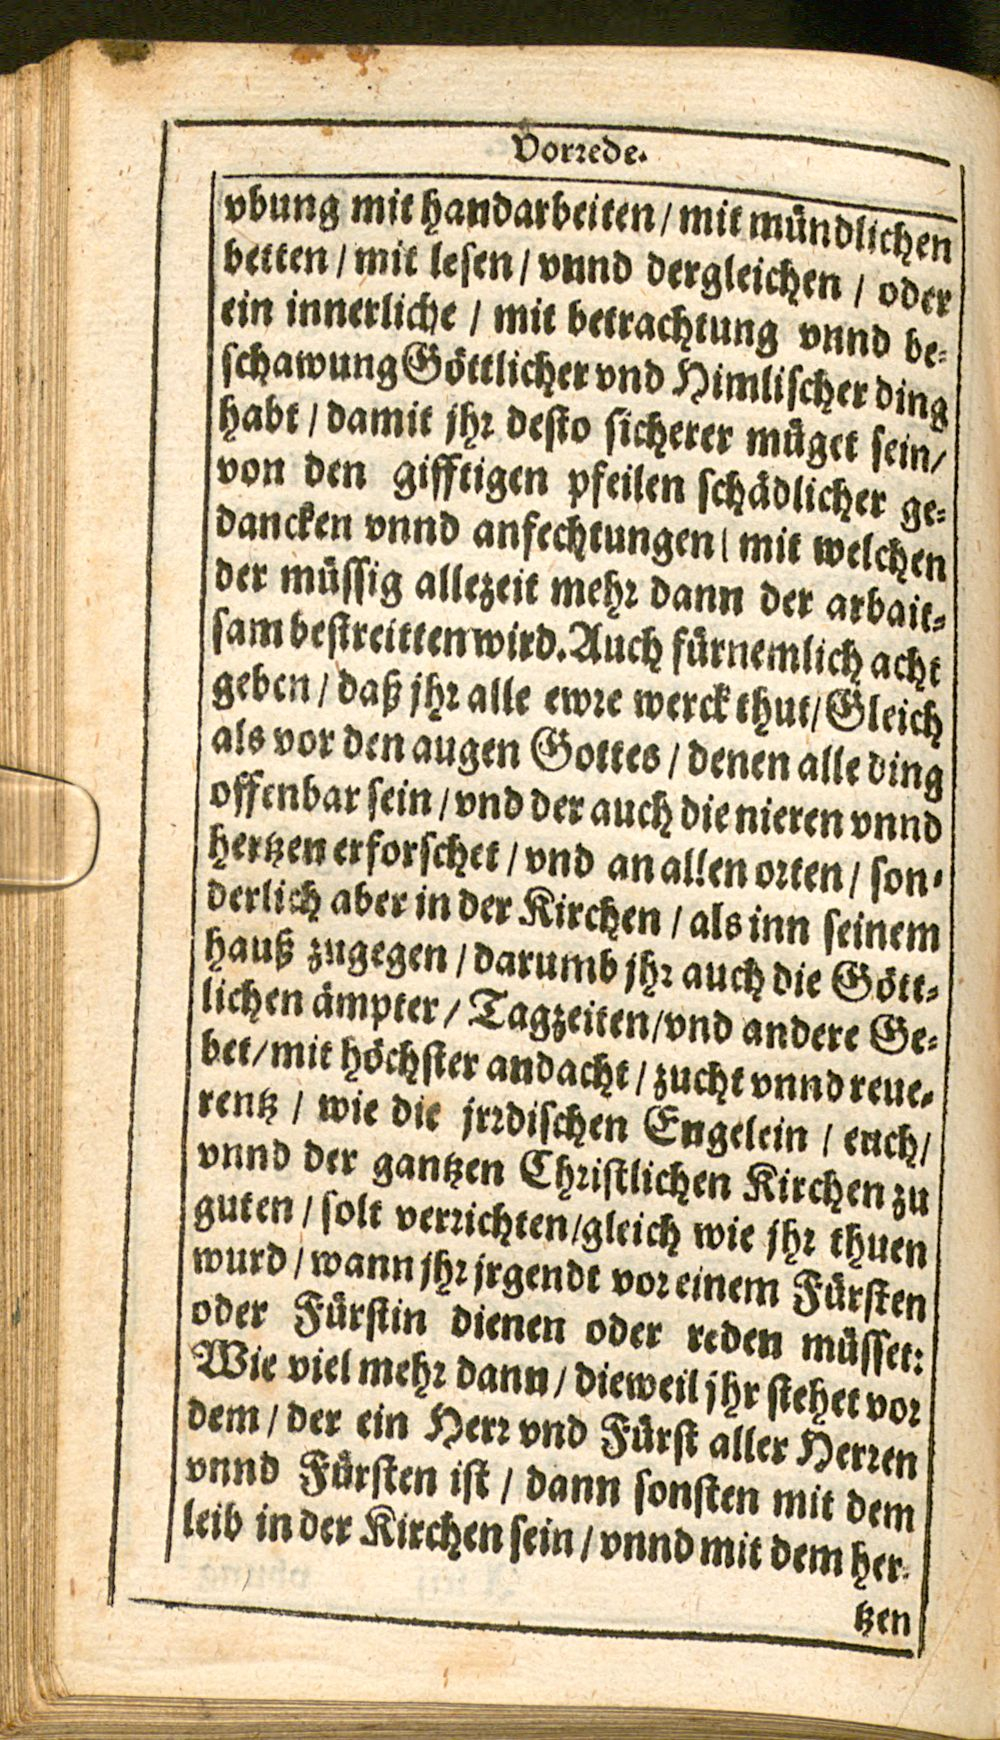 Vorrede.
vbung mit handarbeiten / mit mündlichen
betten / mit lesen / vnnd dergleichen / oder
ein innerliche / mit betrachtung vnnd be-
schawung Göttlicher vnd Himlischer ding
habt / damit jhr desto sicherer müget sein /
von den gifftigen pfeilen schädlicher ge-
dancken vnnd anfechtungen / mit welchen
der müssig allezeit mehr dann der arbait-
sam bestreitten wird. Auch fürnemlich acht
geben / daß jhr alle ewre werck thut / Gleich
als vor den augen Gottes / denen alle ding
offenbar sein / vnd der auch die nieren vnnd
hertzen erforschet / vnd an allen orten / son-
derlich aber in der Kirchen / als inn seinem
hauß zugegen / darumb jhr auch die Gött-
lichen ämpter / Tagzeiten / vnd andere Ge-
bet / mit höchster andacht / zucht vnnd reue-
rentz / wie die jrrdischen Engelein / euch /
vnnd der gantzen Christlichen Kirchen zu
guten / solt verrichten / gleich wie jhr thuen
wurd / wann jhr jrgendt vor einem Fürsten
oder Fürstin dienen oder reden müsset:
Wie viel mehr dann / dieweil jhr stehet vor
dem / der ein Herr vnd Fürst aller Herren
vnnd Fürsten ist / dann sonsten mit dem
leib in der Kirchen sein / vnnd mit dem her-
tzen